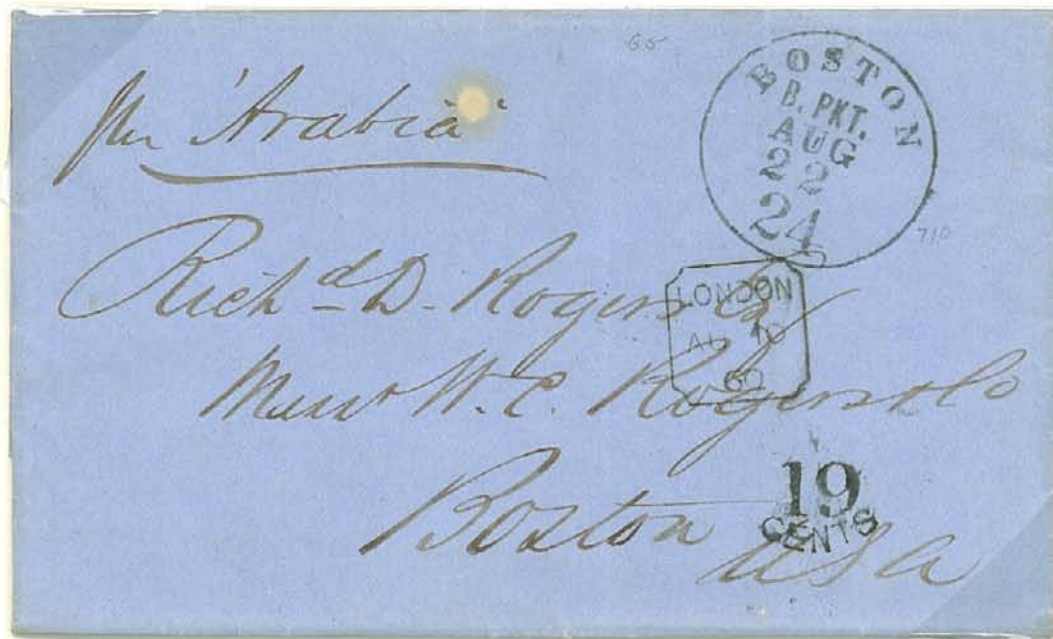 65
per 'Arabia'
BOSTON
B. PKT.
AUG
22
24
710
Richd D. Rogers Esq
LONDON
AU 10
60
Messrs W. C. Rogers & Co
Boston
USA
19
CENTS